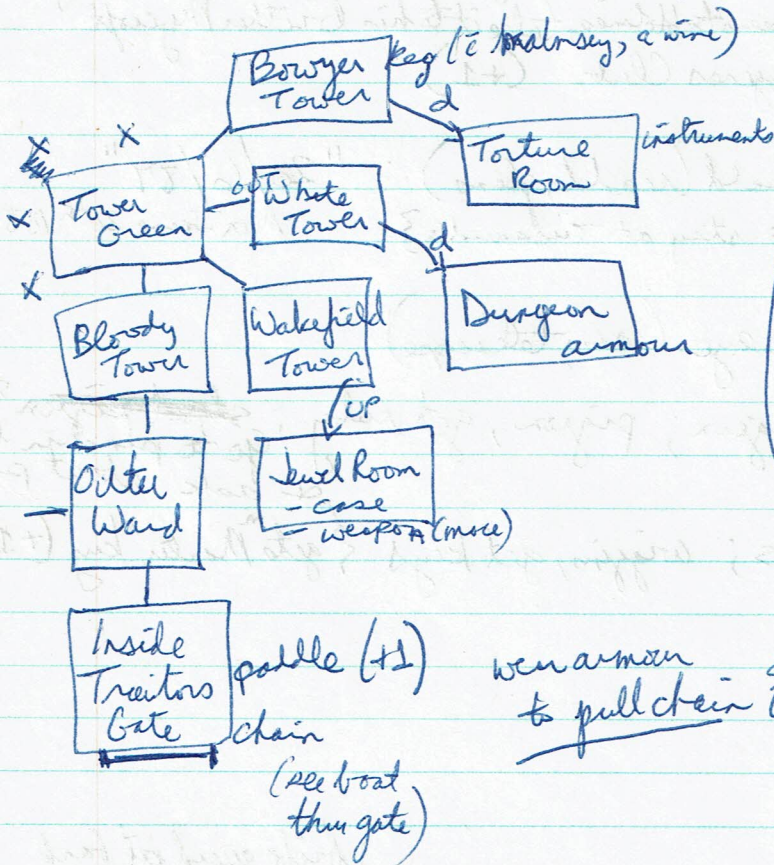 Bowyer
Tower
keg (c̄ malmsey, a wine)
d
Torture
Room
instruments
x
x
x
x
Tower
Green
White
Tower
d
Dungeon
armour
Bloody
Tower
Wakefield
Tower
UP
Outer
Ward
Jewel Room
- case
- weapon (mace)
Inside
Traitors
Gate
paddle (+1)
chain
(see boat
thru gate)
wear armour
to pull chain